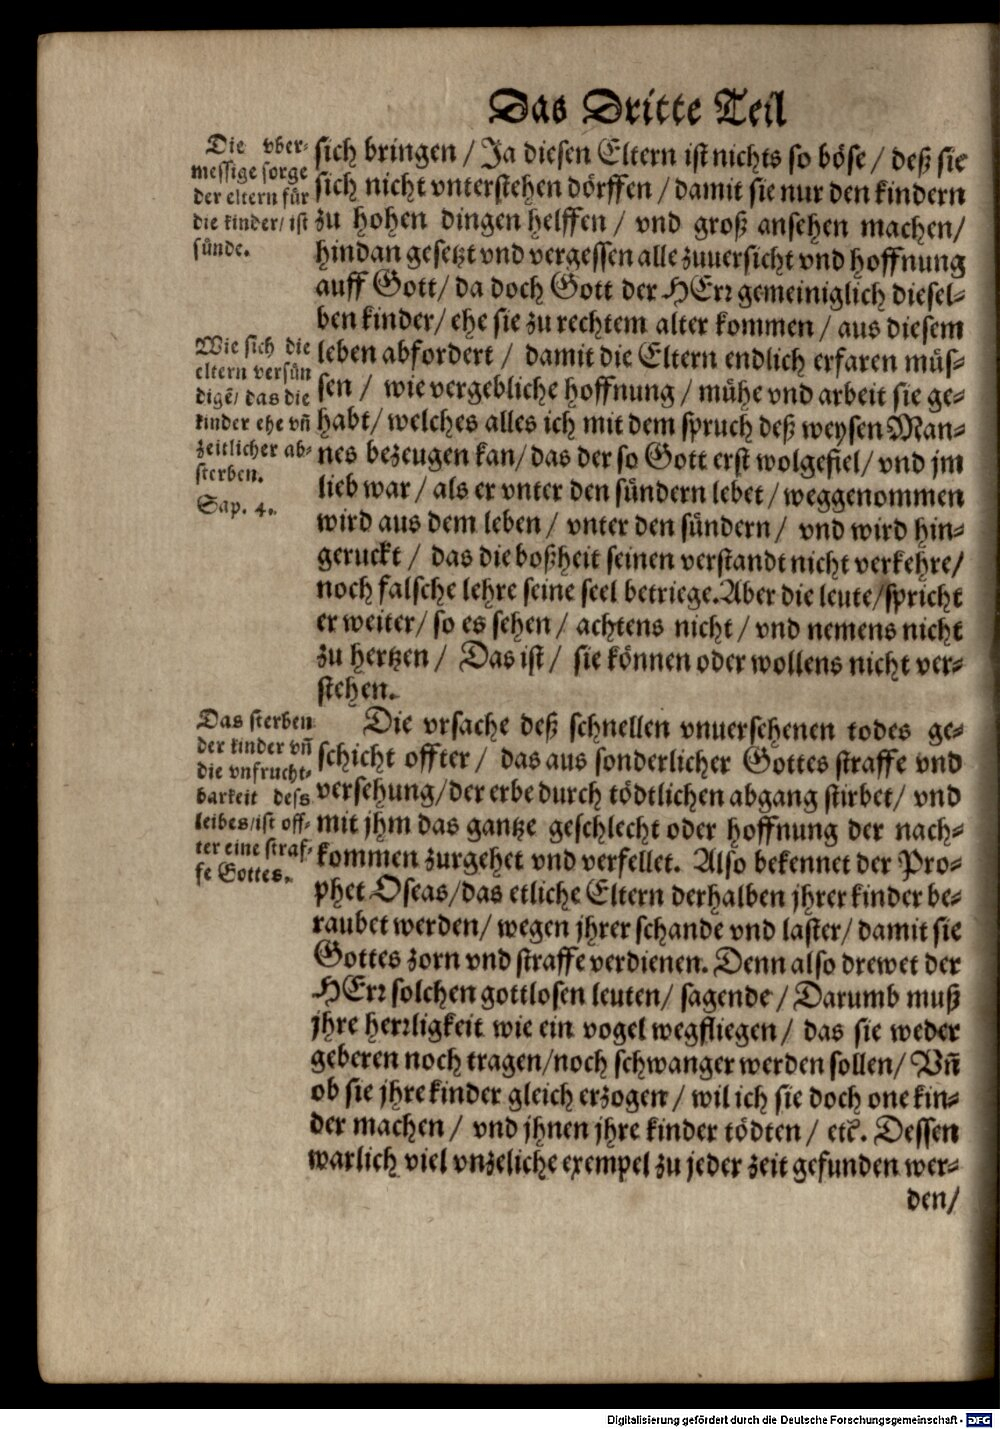 Das Dritte Teil
Die vber-
messige sorge
der eltern für
die kinder/ ist
sünde.
sich bringen / Ja diesen Eltern ist nichts so böse / deß sie
sich nicht vnterstehen dörffen / damit sie nur den kindern
zu hohen dingen helffen / vnd groß ansehen machen/
hindan gesetzt vnd vergessen alle zuuersicht vnd hoffnung
auff Gott/ da doch Gott der HErr gemeiniglich diesel-
ben kinder/ ehe sie zu rechtem alter kommen / aus diesem
Wie sich die
eltern versün
digē/ das die
kinder ehe vñ
zeitlicher ab-
sterben.
Sap. 4.
leben abfordert / damit die Eltern endlich erfaren müs-
sen / wie vergebliche hoffnung / mühe vnd arbeit sie ge-
habt/ welches alles ich mit dem spruch deß weysen Man-
nes bezeugen kan/ das der so Gott erst wolgefiel/ vnd jm
lieb war / als er vnter den sündern lebet / weggenommen
wird aus dem leben / vnter den sündern / vnd wird hin-
geruckt / das die boßheit seinen verstandt nicht verkehre/
noch falsche lehre seine seel betriege. Aber die leute/spricht
er weiter/ so es sehen / achtens nicht / vnd nemens nicht
zu hertzen / Das ist / sie können oder wollens nicht ver-
stehen.
Das sterben
der kinder vñ
die vnfrucht-
barkeit dess
leibes/ist off-
ter eine straf-
fe Gottes.
Die vrsache deß schnellen vnuersehenen todes ge-
schicht offter / das aus sonderlicher Gottes straffe vnd
versehung/der erbe durch tödtlichen abgang stirbet/ vnd
mit jhm das gantze geschlecht oder hoffnung der nach-
kommen zurgehet vnd verfellet. Also bekennet der Pro-
phet Oseas/das etliche Eltern derhalben jhrer kinder be-
raubet werden/ wegen jhrer schande vnd laster/ damit sie
Gottes zorn vnd straffe verdienen. Denn also drewet der
HErr solchen gottlosen leuten/ sagende / Darumb muß
jhre herrligkeit wie ein vogel wegfliegen / das sie weder
geberen noch tragen/noch schwanger werden sollen/ Vñ
ob sie jhre kinder gleich erzogen / wil ich sie doch one kin-
der machen / vnd jhnen jhre kinder tödten / etc. Dessen
warlich viel vnzeliche exempel zu jeder zeit gefunden wer-
den/
Digitalisierung gefördert durch die Deutsche Forschungsgemeinschaft - DFG